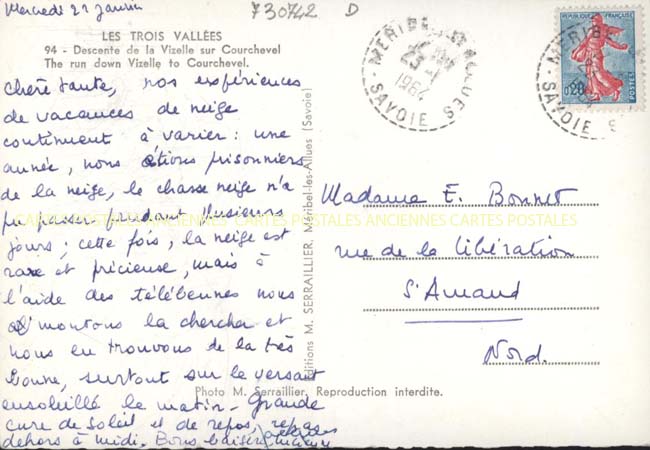 Mercredi 22 janvier
730742 D
LES TROIS VALLÉES
94 - Descente de la Vizelle sur Courchevel
The run down Vizelle to Courchevel.
chère tante, nos expériences
de vacances de neige
continuent à varier : une
année, nous étions prisonniers
de la neige, le chasse neige n'a
pu passer pendant plusieurs
jours ; cette fois, la neige est
rare et précieuse, mais à
l'aide des télébennes nous
montons la chercher et
nous en trouvons de la très
bonne, surtout sur le versant
ensoleillé le matin - Grande
cure de soleil et de repos, repas
dehors à midi. Bons baisers
Editions M. SERRAILLIER, Méribel-les-Allues (Savoie)
Photo M. Serraillier. Reproduction interdite.
MERIBEL LES ALLUES
1964
SAVOIE
REPUBLIQUE FRANÇAISE
0,20
POSTES
MERIBE
SAVOIE
Madame E. Bonnet
rue de la libération
St Amand
Nord.
CARTES POSTALES ANCIENNES CARTES POSTALES